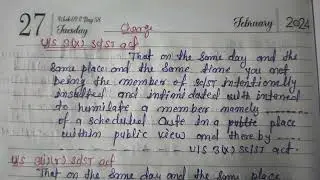 27
Week-09 Day-58
Tuesday
Charge
February
2024
U/S 3(x) SC/ST act
That on the same day and the
same place and the same time you not
being the member of SC/ST intentionally
insulted and intimidated with intened
to humilate a member namely
of a scheduled Caste in a public place
within public view and thereby
U/S 3(x) SC/ST act.
U/S 3(i)(r) SC/ST act
That on the same day and the same place